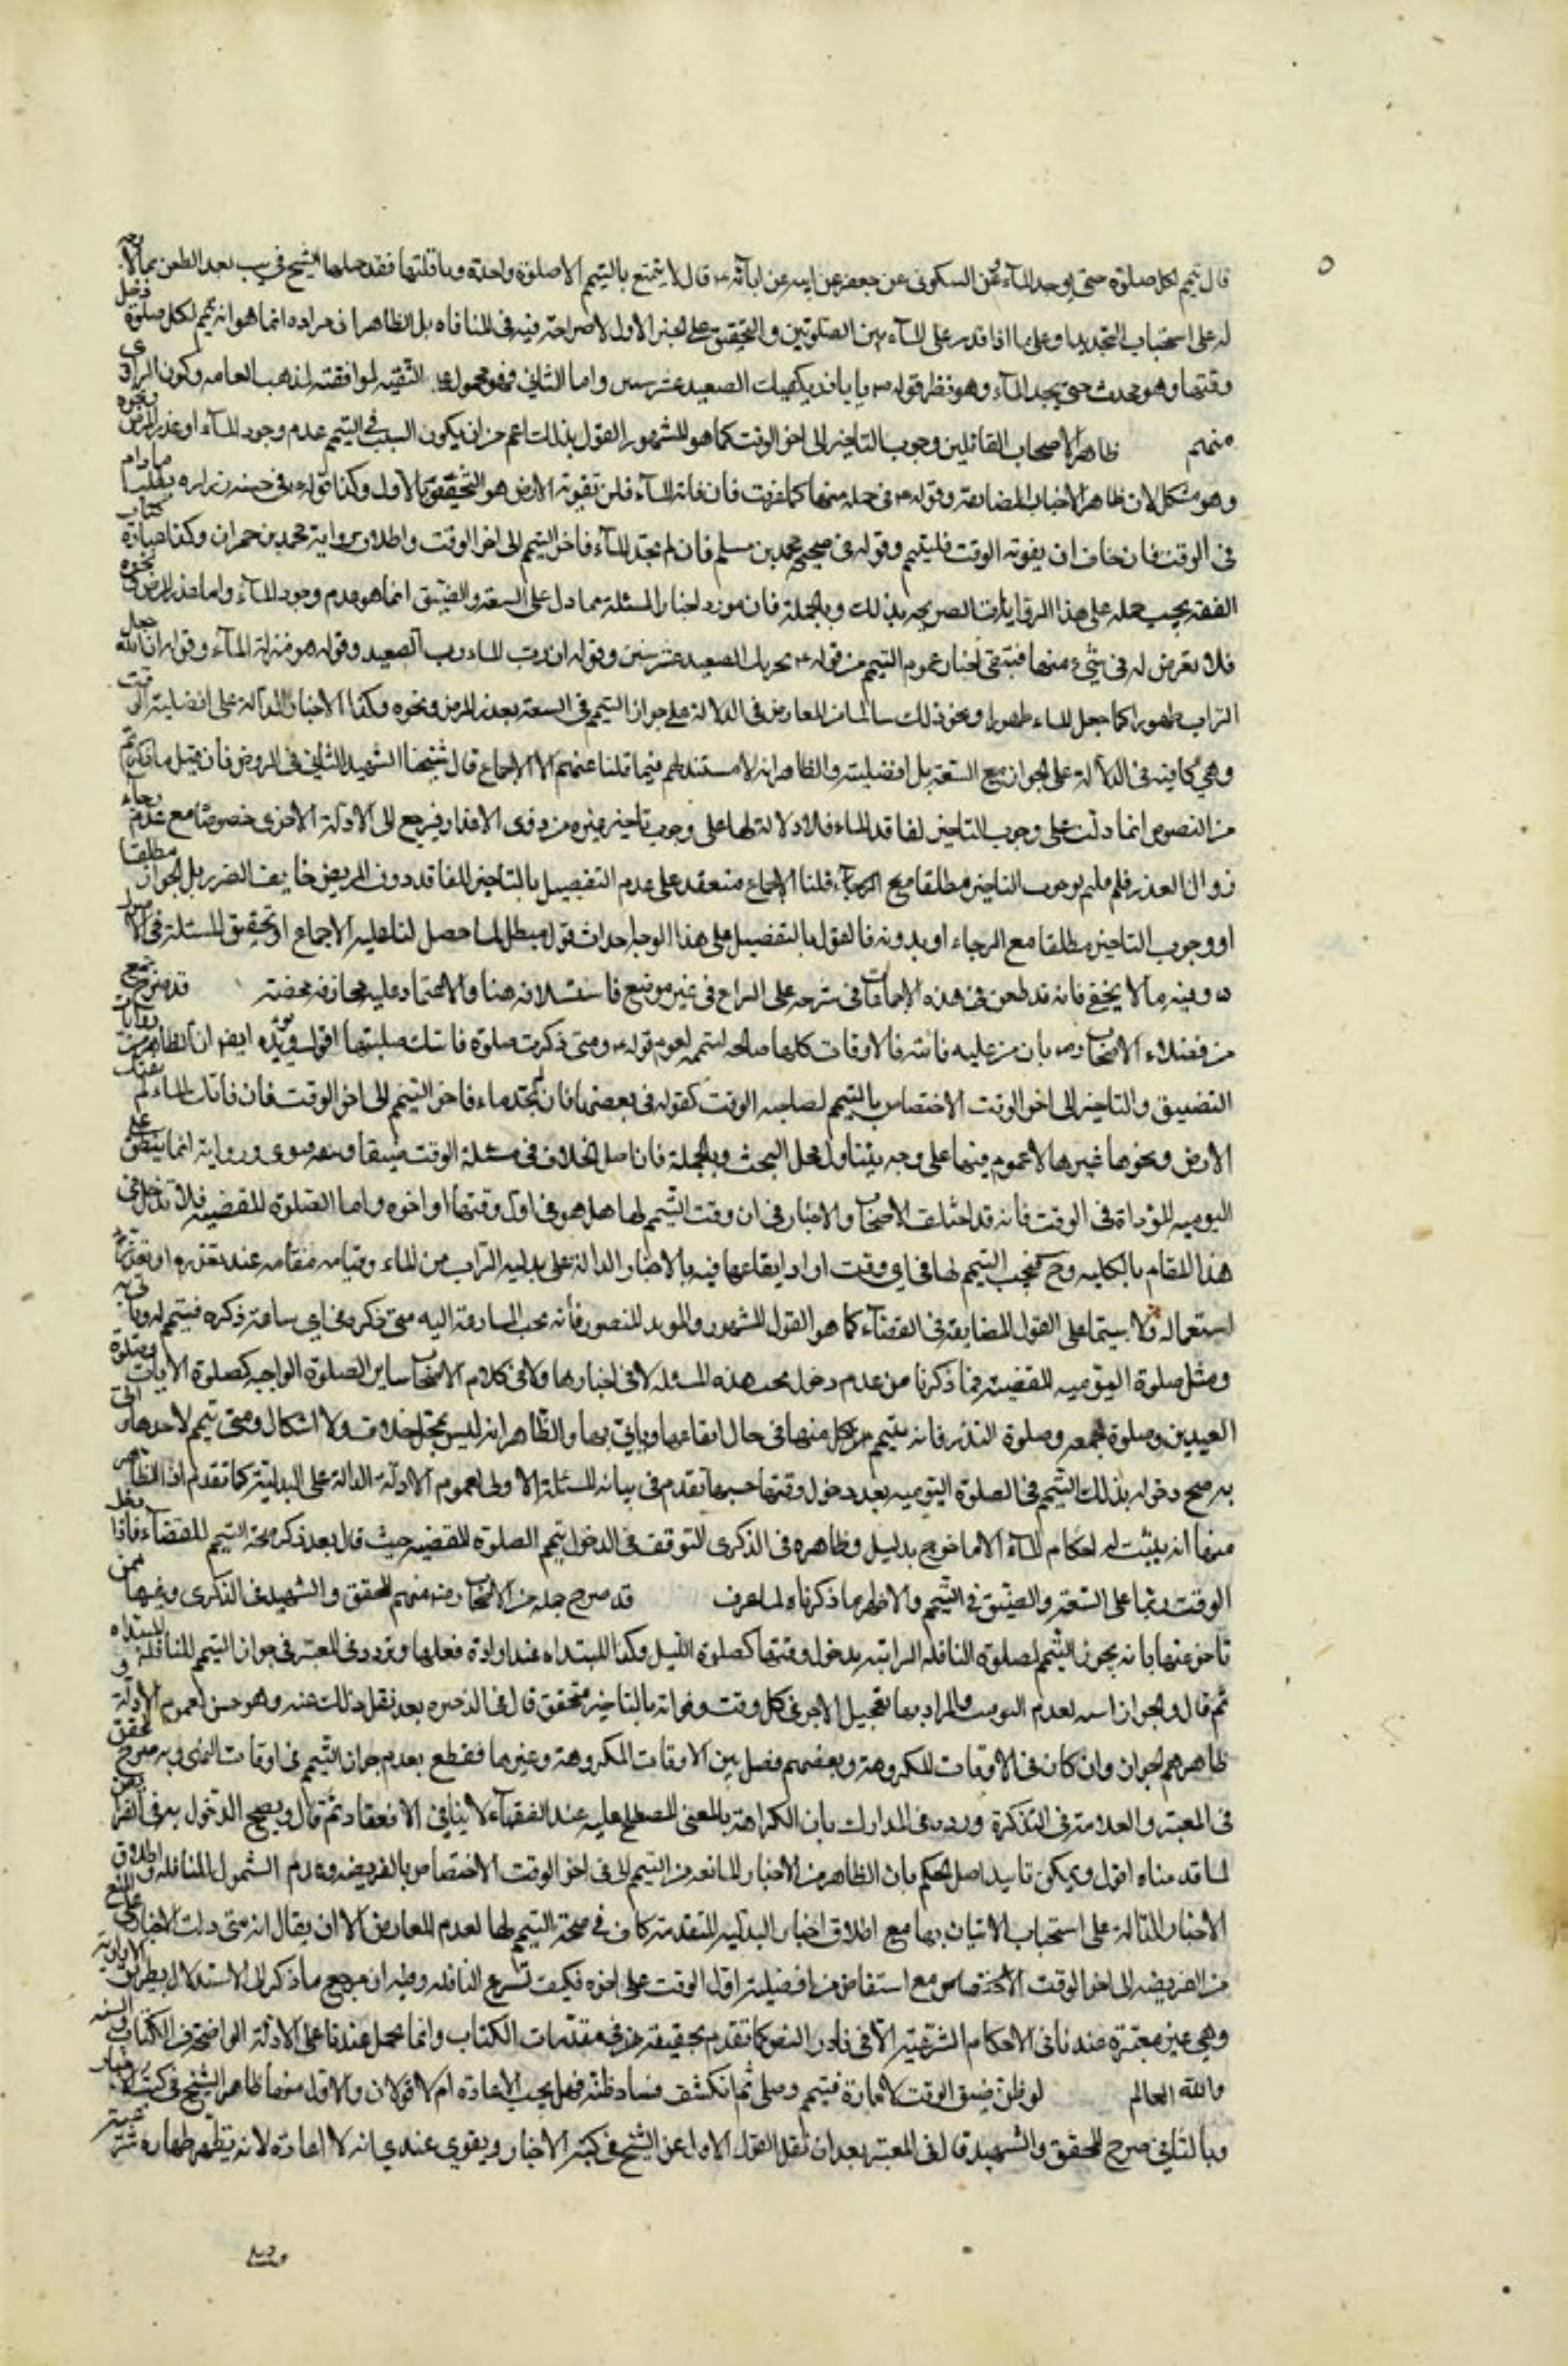 قال تيمم لكل صلوة حتى يوجد الماء وعن السكونى عن جعفر عن ابيه عن ابآئه ع قال لا يتمتع بالتيمم الا صلوة واحدة وما قلتها فقد حملها الشيخ فى يب بعد الطعن بما لا وجه
له على استحباب التجديد او على ما اذا قدر على المآء بين الصلوتين والتحقيق على الخبر الاول لا صراحة فيه فى المنافاة بل الظاهر ان مراده انما هو انه تيمم لكل صلوة دخل
وقتها وهو محدث حتى يجد المآء وهو نظر قوله ص يا باذر يكفيك الصعيد عشر سنين واما الثانى فهو محمول على التقية لموافقته لمذهب العامه وكون الراوى
منهم ظاهر الاصحاب القائلين وجوب التاخير الى اخر الوقت كما هو المشهور القول بذلك اعم من ان يكون السبب فى التيمم عدم وجود المآء او عذر المرض ونحوه
وهو مشكل لان ظاهر الاخبار المضايقة وقوله ع فى جملة منها كما عرفت فان فاته المآء فلن تفوته الارض هو التحقيق الاول وكذا قوله ع فى حسنة زراره يطلب ما دام
فى الوقت فان خاف ان يفوته الوقت فليتيمم وقوله فى صحيحة محمد بن مسلم فان لم تجد المآء فاخر التيمم الى اخر الوقت واطلاق رواية محمد بن حمران وكذا عبارة كتاب
الفقه يجب حمله على هذا الروايات الصريحه بذلك وبالجملة فان مورد اخبار المسئلة مما دل على السعة والضيق انما هو عدم وجود المآء واما عذر المرض ونحوه
فلا تعرض له فى شئ منها فتبقى اخبار عموم التيمم من قوله ع يجزيك الصعيد عشر سنين وقوله ان رب الماء رب الصعيد وقوله هو منزلة المآء وقوله ان الله جعل
التراب طهورا كما جعل الماء طهورا ونحو ذلك سالما من المعارض فى الدلالة على جواز التيمم فى السعة بعذر المرض ونحوه وكذا الاخبار الدالة على افضلية اول الوقت
وهي كافية فى الدلالة على الجواز مع السعة بل افضليته والظاهر انه لا مستند لهم فيما قلنا عنهم الا الاجماع قال شيخنا الشهيد الثانى فى الروض فان قيل ما ذكرتم
من النصوص انما دلت على وجوب التاخير لفاقد الماء فلا دلالة لها على وجوب تاخير غيره من ذوى الاعذار فيرجع الى الادلة الاخرى خصوصا مع عدم رجاء
زوال العذر فلم قلتم بوجوب التاخير مطلقا مع الرجآء قلنا الاجماع منعقد على عدم التفصيل بالتاخير للفاقد دون المريض خايف الضرر بل الجواز مطلقا
او وجوب التاخير مطلقا مع الرجاء او بدونه فالقول بالتفصيل على هذا الوجه احداث قول مبطل لما حصل لنا عليه الاجماع او تحقيق المسئلة فى الاصول
ه وفيه ما لا يخفى فانه قد طعن فى هذه الاجماعات فى شرحه على الشرائع فى غير موضع فاستدلاله هنا والاعتماد عليه مجازفة محضة قد صرح جمع
من فضلاء الاصحاب رض بان من عليه فائتة فالاوقات كلها صالحة لتيممه لعموم قوله ع ومتى ذكرت صلوة فاتتك صليتها اقول ويؤيده ايض ان الظاهر من روايات
التضييق والتاخير الى اخر الوقت الاختصاص بالتيمم لصاحبه الوقت كقوله فى بعضها فان لم تجد ماء فاخر التيمم الى اخر الوقت فان فاتك الماء لم تفتك
الارض ونحوها غيرها لا عموم فيها على وجه يتناول محل البحث وبالجملة فان اصل الخلاف فى مسئلة الوقت ضيقا وسعه موى ورواية انما ينطبق على
اليوميه المؤداة فى الوقت فانه قد اختلفت الاصحاب والاخبار فى ان وقت التيمم لها هل هو فى اول وقتها او اخره واما الصلوة المقضيه فلا تدخل فى
هذا المقام بالكليه وح فيجب التيمم لها فى اي وقت اراد ايقاعها فيه بالاخبار الدالة على بدلية التراب من الماء وقيامه مقامه عند تعذره او تعذر
استعماله ولا سيما على القول بالمضايقة فى القضآء كما هو القول المشهور والمويد المنصور فأنه يجب المسارعة اليه متى ذكره فى اي ساعة ذكره فيتيمم له وياتى به
ومثل صلوة اليوميه المقضية فيما ذكرنا من عدم دخول تحت هذه المسئله لا فى اخبارها ولا فى كلام الاصحاب ساير الصلوة الواجبه كصلوة الايات وصلوة
العيدين وصلوة الجمعه وصلوة النذر فانه يتيمم لكل منها فى حال ايقاعها وياتى بها والظاهر انه ليس محل خلاف ولا اشكال ومتى تيمم لاحدها واتى
به صح دخوله بذلك التيمم فى الصلوة اليوميه بعد دخول وقتها حسبما تقدم فى بيانه المسئلة الاولى لعموم الادلة الدالة على البدلية كما تقدم اذ الظاهر
منها انه يثبت له احكام المآء الا ما خرج بدليل وظاهره فى الذكرى التوقف فى الدخول بتيمم الصلوة المقضيه حيث قال بعد ذكر صحة التيمم للقضآء فاذا دخل
الوقت ربما على السعة والضيق فى التيمم والاظهر ما ذكرناه لما عرف قد صرح جملة من الاصحاب رض منهم المحقق والشهيد فى الذكرى وغيرهما ممن
تاخر عنهما بانه يجوز التيمم لصلوة النافله الراتبه بدخول وقتها كصلوة الليل وكذا المبتداه عند ارادة فعلها وتردد فى المعتبر فى جواز التيمم للنافلة المبتداه
ثم قال والجواز اشبه لعدم التوقيت والمراد بها تعجيل الاجر فى كل وقت وفواته بالتاخير متحقق قال فى الذخيره بعد نقل ذلك عنه وهو حسن لعموم الادلة و
ظاهرهم الجواز وان كان فى الاوقات المكروهة وبعضهم فصل بين الاوقات المكروهة وغيرها فقطع بعدم جواز التيمم فى اوقات النهى وبه صرح المحقق
فى المعتبر والعلامة فى التذكرة ورده فى المدارك بان الكراهة بالمعنى المصطلح عليه عند الفقهآء لا ينافى الانعقاد ثم قال ويصح الدخول به فى الفرايض
لما قدمناه اقول ويمكن تاييد اصل الحكم بان الظاهر من الاخبار المانعة من التيمم الى فى اخر الوقت الاختصاص بالفريضه وعدم الشمول للنافله واطلاق
الاخبار الدالة على استحباب الاتيان بها مع اطلاق اخبار البدلية المتقدمة كاف فى صحة التيمم لها لعدم المعارض الا ان يقال انه متى دلت الاخبار على المنع
من الفريضه الى اخر الوقت الاختصاص مع استفاضة افضلية اول الوقت على اخره فكيف تشرع النافله وفيه ان مرجع ما ذكر الى الاستدلال بطريق الاولوية
وهي غير معتبرة عندنا فى الاحكام الشرعية الا فى نادر النص كما تقدم تحقيقه فى مقدمات الكتاب وانما نحمل عندنا على الادلة الواضحة فى الكتاب والسنه
والله العالم لو ظن ضيق الوقت لامارة فتيمم وصلى ثم انكشف فساد ظنه فهل يجب الاعاده ام لا قولان والاول منهما ظاهر الشيخ فى كتب الاخبار
وبالثاني صرح المحقق والشهيد قال فى المعتبر بعد ان نقل القول الاول عن الشيخ فى كتب الاخبار ويقوي عندي انه لا اعادة لانه تطهر طهارة شرعية